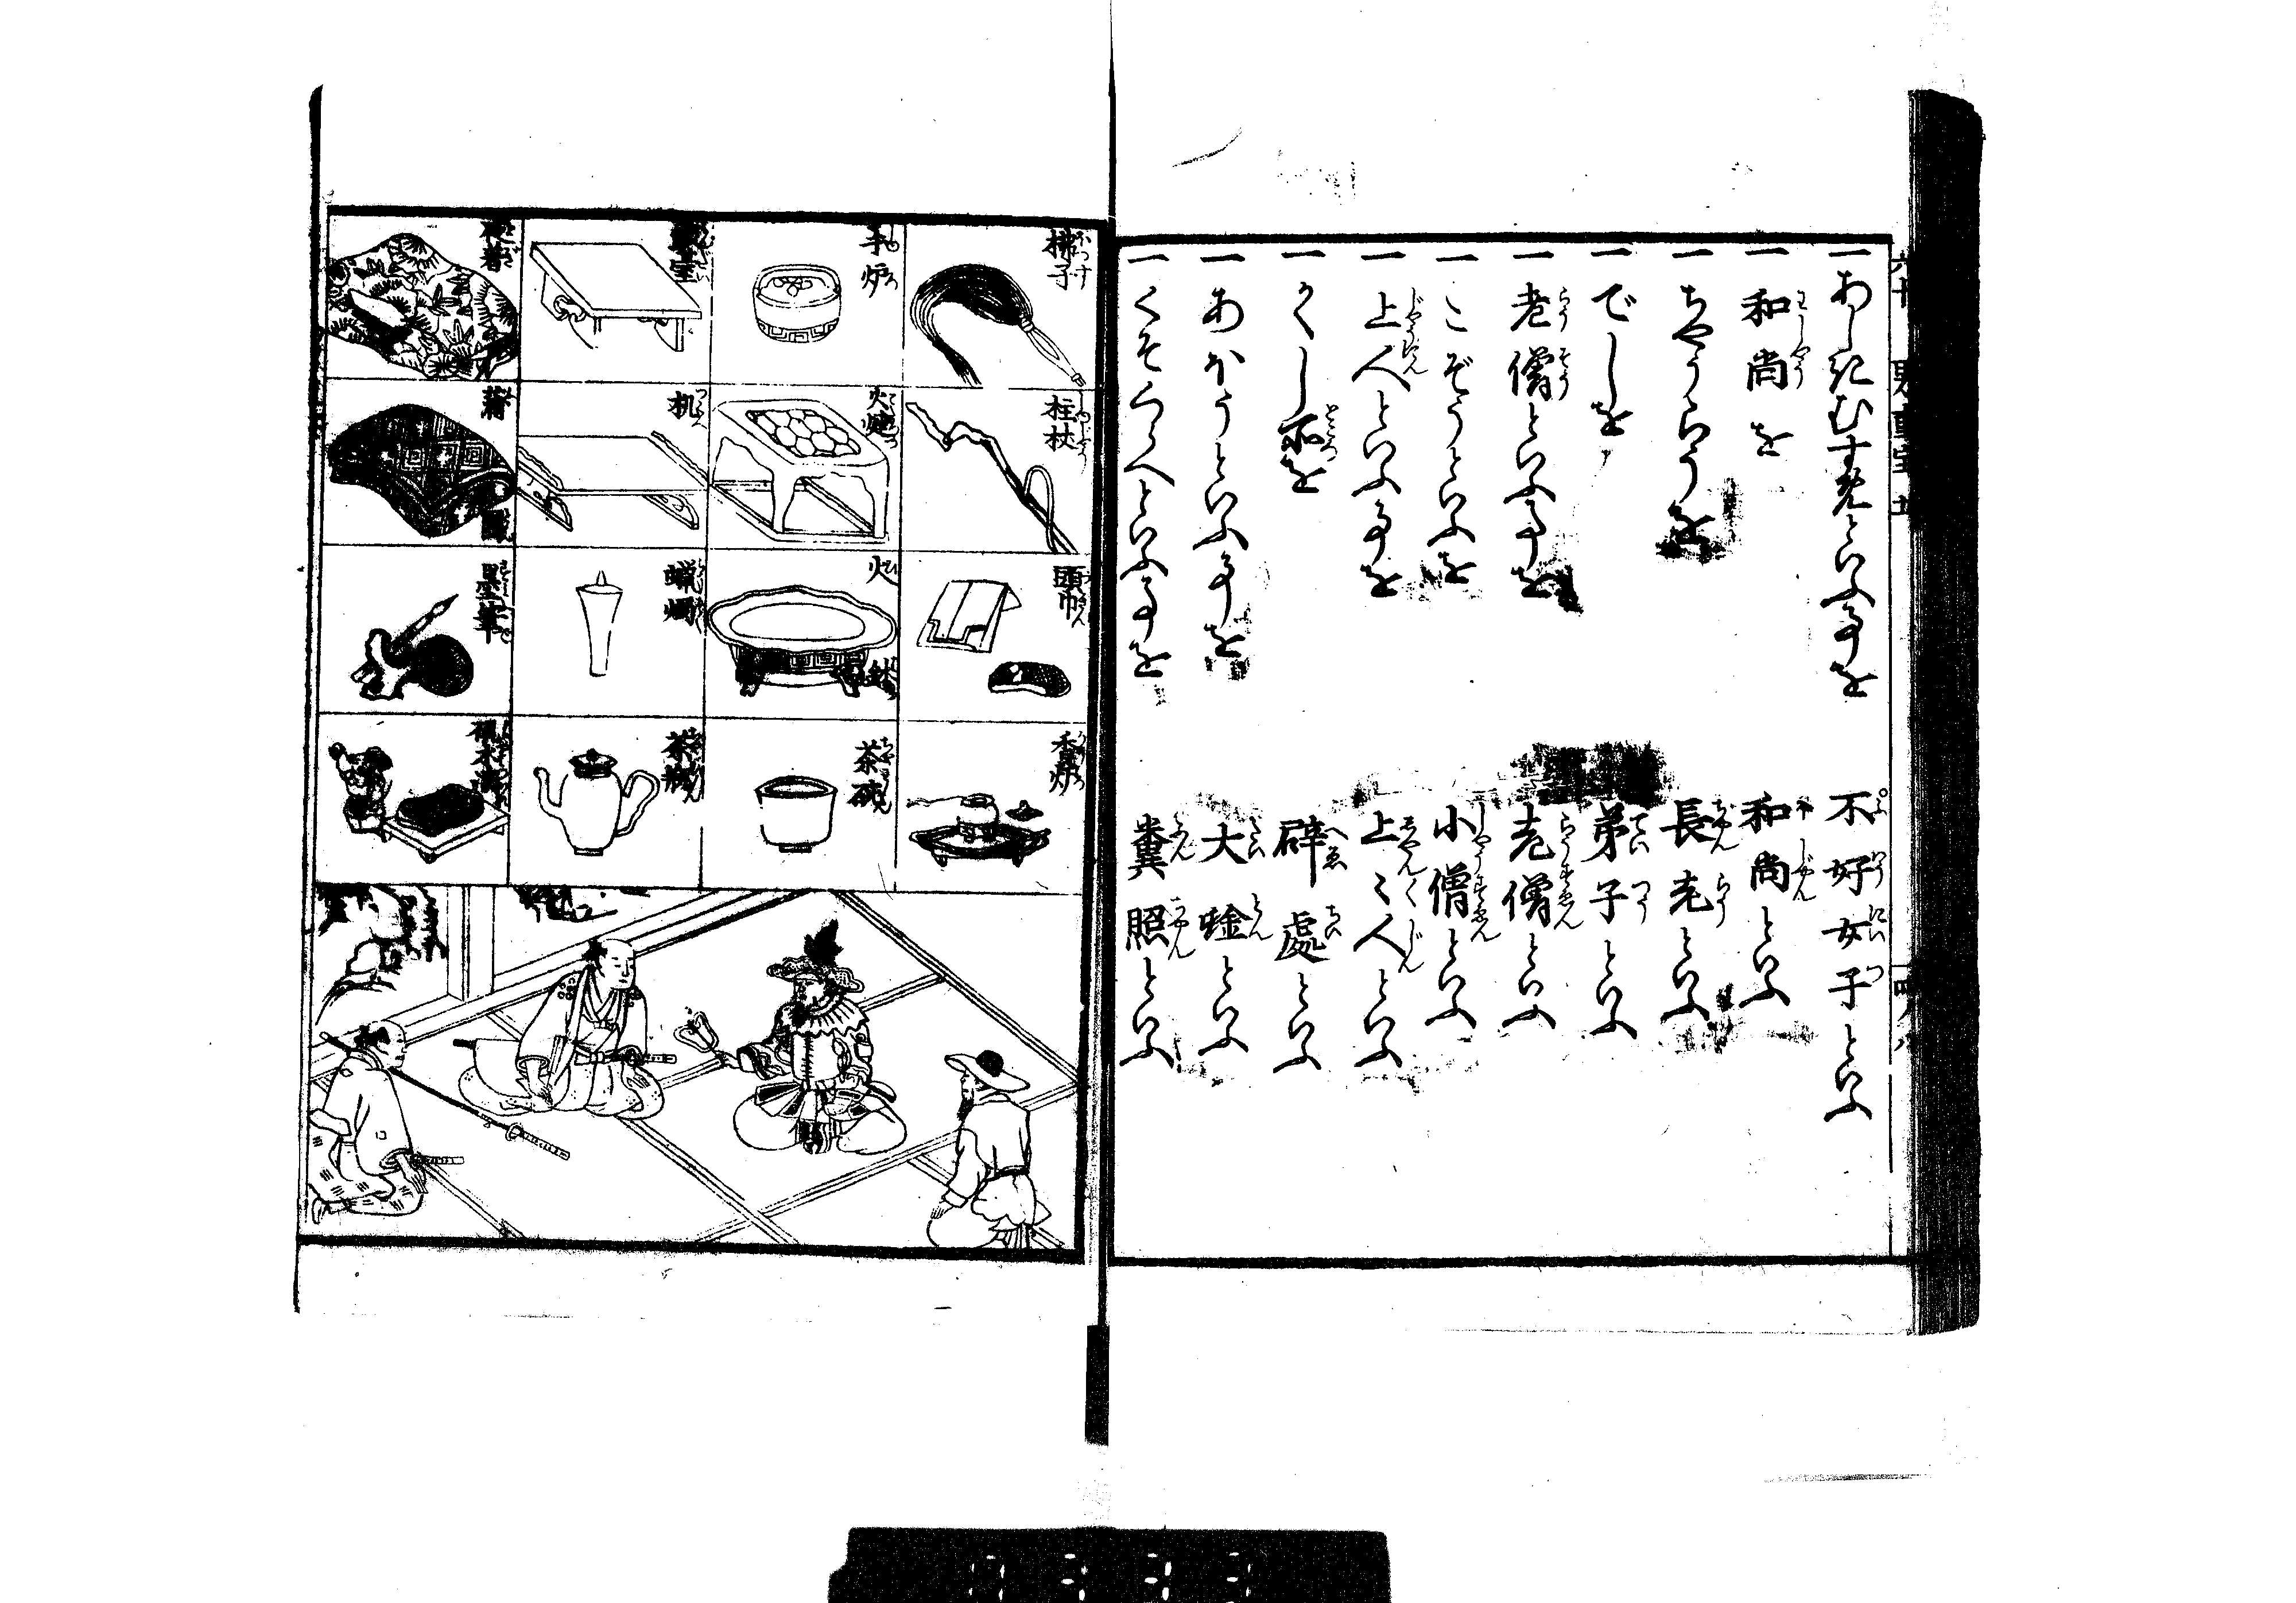 一あしきむすめといふ事を　不好女子といふ
一和尚を　和尚といふ
一ちやうらうを　長老といふ
一でしを　弟子といふ
一老僧といふ事を　老僧といふ
一こぞうといふを　小僧といふ
一上人といふ事を　上〻人といふ
一かくし所を　辟處といふ
一あかうといふ事を　大唫といふ
一くそくらへといふ事を　糞照といふ
拂子
手炉
夜着
拄杖
火燵
机
頭巾
火鉢
蝋燭
墨筆
香炉
茶碗
茶瓶